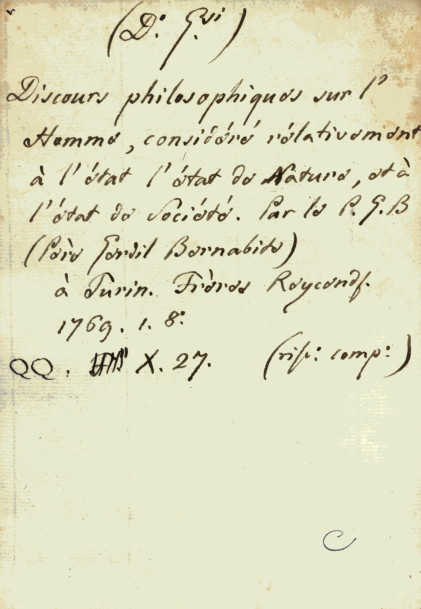 (D.º G.si)
Discours philosophiques sur l'
Homme, considéré rélativement
à l'état l'état de Nature, et à
l'état de Société. Par le P. G. B
(Père Gerdil Barnabite)
à Turin. Frères Reycend f.
1769. 1. 8.º
QQ. X. 27. (risp.: comp:)
C